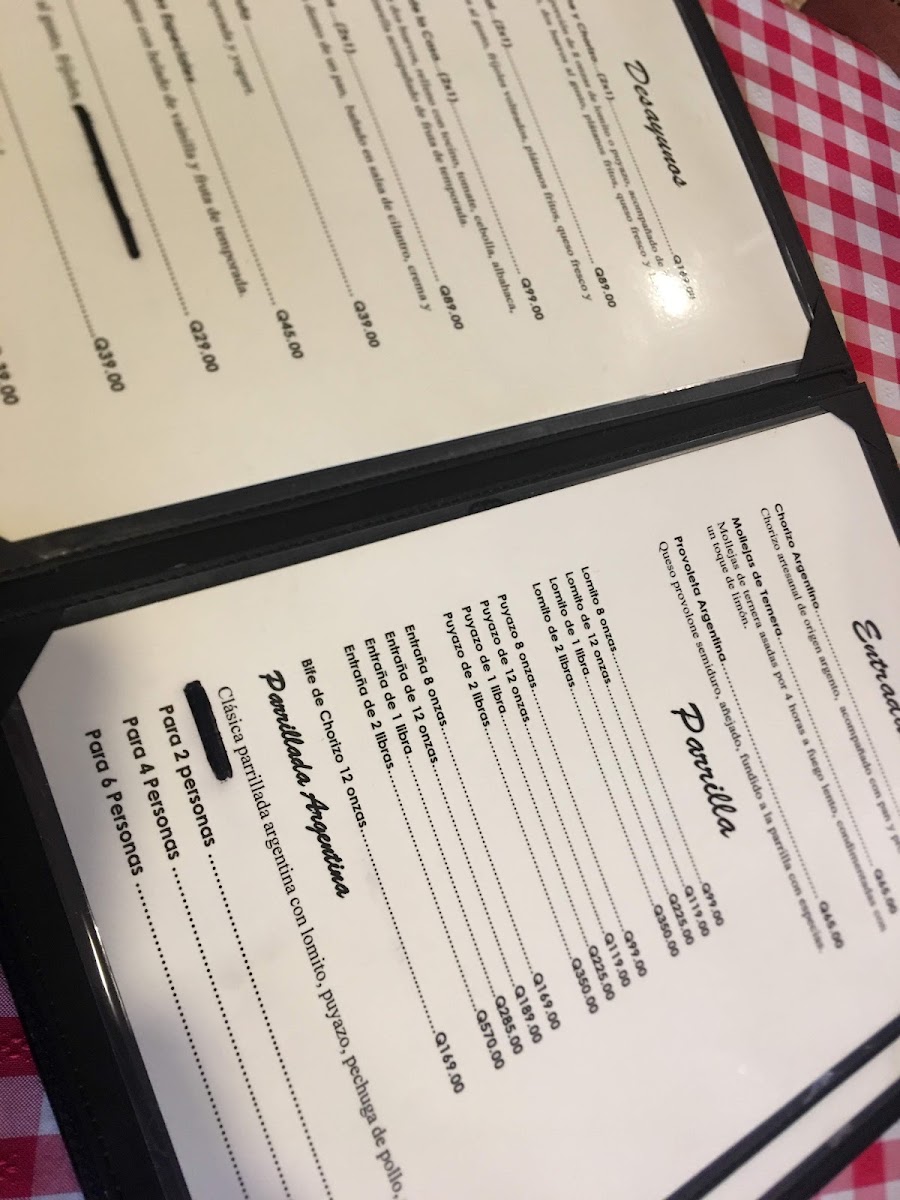 Desayunos
y Chorizo...(2x1)
de 8 onzas de lomito o puyazo, acompañado de
dos huevos al gusto, plátanos fritos, queso fresco y
Q169.00
(2x1)
al gusto, frijoles volteados, plátanos fritos, queso fresco y
Q89.00
de la Casa...(2x1)
dos huevos, relleno con tocino, tomate, cebolla, albahaca,
acompañado de fruta de temporada.
Q99.00
...(2x1)
de un pan, bañado en salsa de cilantro, crema y
Q89.00
y yogurt.
Q39.00
Especiales
con helado de vainilla y fruta de temporada.
Q45.00
al gusto, frijoles,
Q29.00
Q39.00
Entrada
Chorizo Argentino
Chorizo artesanal de origen argento, acompañado con pan y
Q65.00
Mollejas de Ternera
Mollejas de ternera asadas por 4 horas a fuego lento, condimentadas con
un toque de limón.
Provoleta Argentina Q65.00
Queso provolone semiduro, añejado, fundido a la parrilla con especias.
Parrilla
Lomito 8 onzas Q99.00
Lomito de 12 onzas Q119.00
Lomito de 1 libra Q225.00
Lomito de 2 libras Q350.00
Puyazo 8 onzas Q99.00
Puyazo de 12 onzas Q119.00
Puyazo de 1 libra Q225.00
Puyazo de 2 libras Q350.00
Entraña 8 onzas Q169.00
Entraña de 12 onzas Q189.00
Entraña de 1 libra Q285.00
Entraña de 2 libras Q570.00
Bife de Chorizo 12 onzas Q169.00
Parrillada Argentina
Clásica parrillada argentina con lomito, puyazo, pechuga de pollo,
Para 2 personas
Para 4 Personas
Para 6 Personas